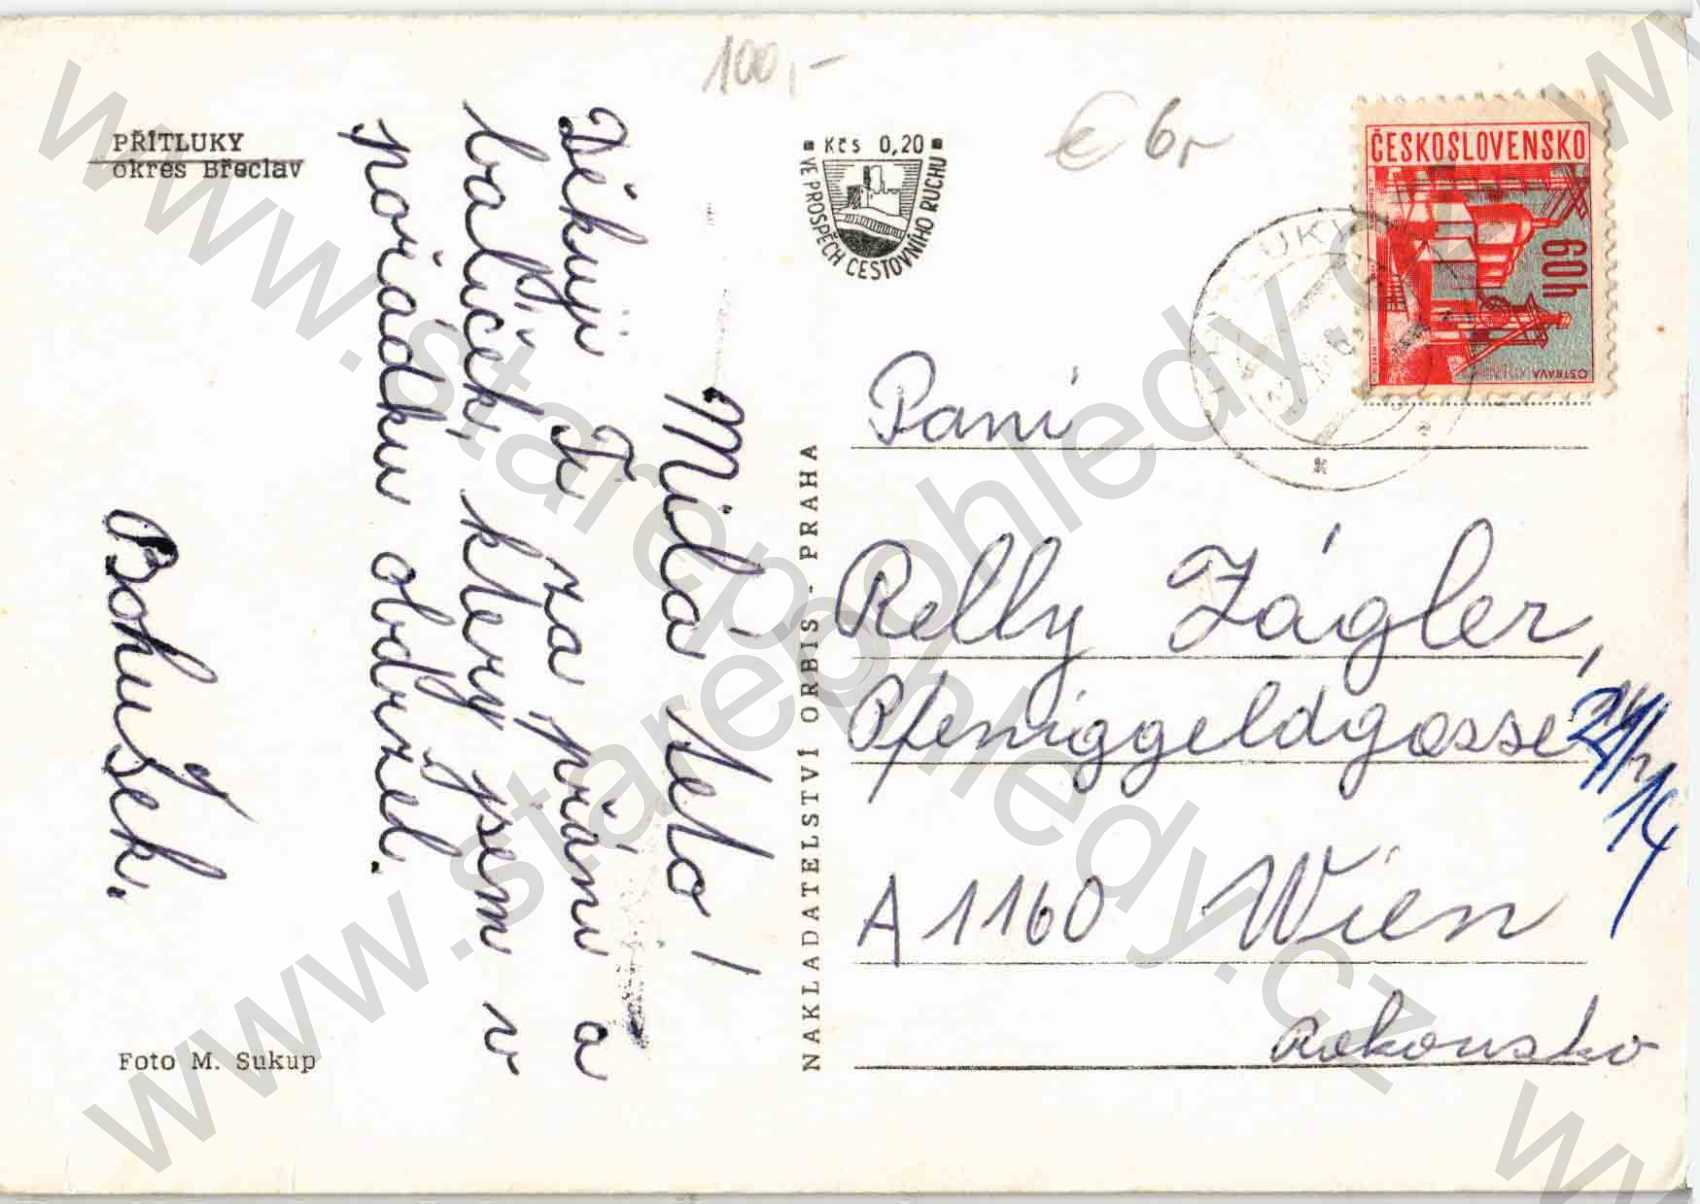 100,-
€ 6,-
PŘÍTLUKY
okres Břeclav
Kčs 0,20
VE PROSPĚCH CESTOVNÍHO RUCHU
ČESKOSLOVENSKO
60h
OSTRAVA
LUKY
Milá teto!
Děkuji Ti za přání a
balíček, který jsem v
pořádku obdržel.
Bohušek.
Foto M. Sukup
NAKLADATELSTVÍ ORBIS - PRAHA
Paní
Relly Zágler,
Pfeniggeldgasse 24/
14
A 1160 Wien
Rakousko
www.starepohledy.cz
www.starepohledy.cz